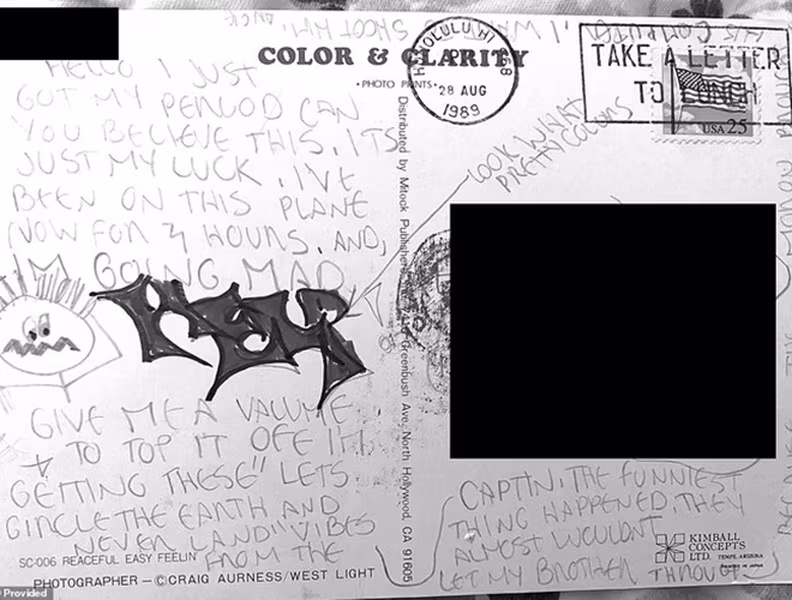 COLOR & CLARITY
• PHOTO PRINTS •
HONOLULU HI
28 AUG
1989
TAKE A LETTER
TO LUNCH
USA 25
HELLO I JUST
GOT MY PERIOD CAN
YOU BELIEVE THIS. ITS
JUST MY LUCK. I'VE
BEEN ON THIS PLANE
NOW FOR 4 HOURS. AND,
IM GOING MAD
GIVE ME A VALUME
+ TO TOP IT OFF IM
GETTING THESE" LETS
CIRCLE THE EARTH AND
NEVER LAND" VIBES
FROM THE
CAPTIN. THE FUNNIEST
THING HAPPENED. THEY
ALMOST WOULDNT
LET MY BROTHER THROUGH
LOOK WHAT
PRETTY COLORS
I WANT SHOOT HIM.
HIS COMPUTER
Distributed by Mitock Publishers Greenbush Ave., North Hollywood, CA 91605
SC-006 PEACEFUL EASY FEELIN'
PHOTOGRAPHER – © CRAIG AURNESS/WEST LIGHT
KIMBALL
CONCEPTS
LTD. TEMPE, ARIZONA
PRINTED IN JAPAN
Provided